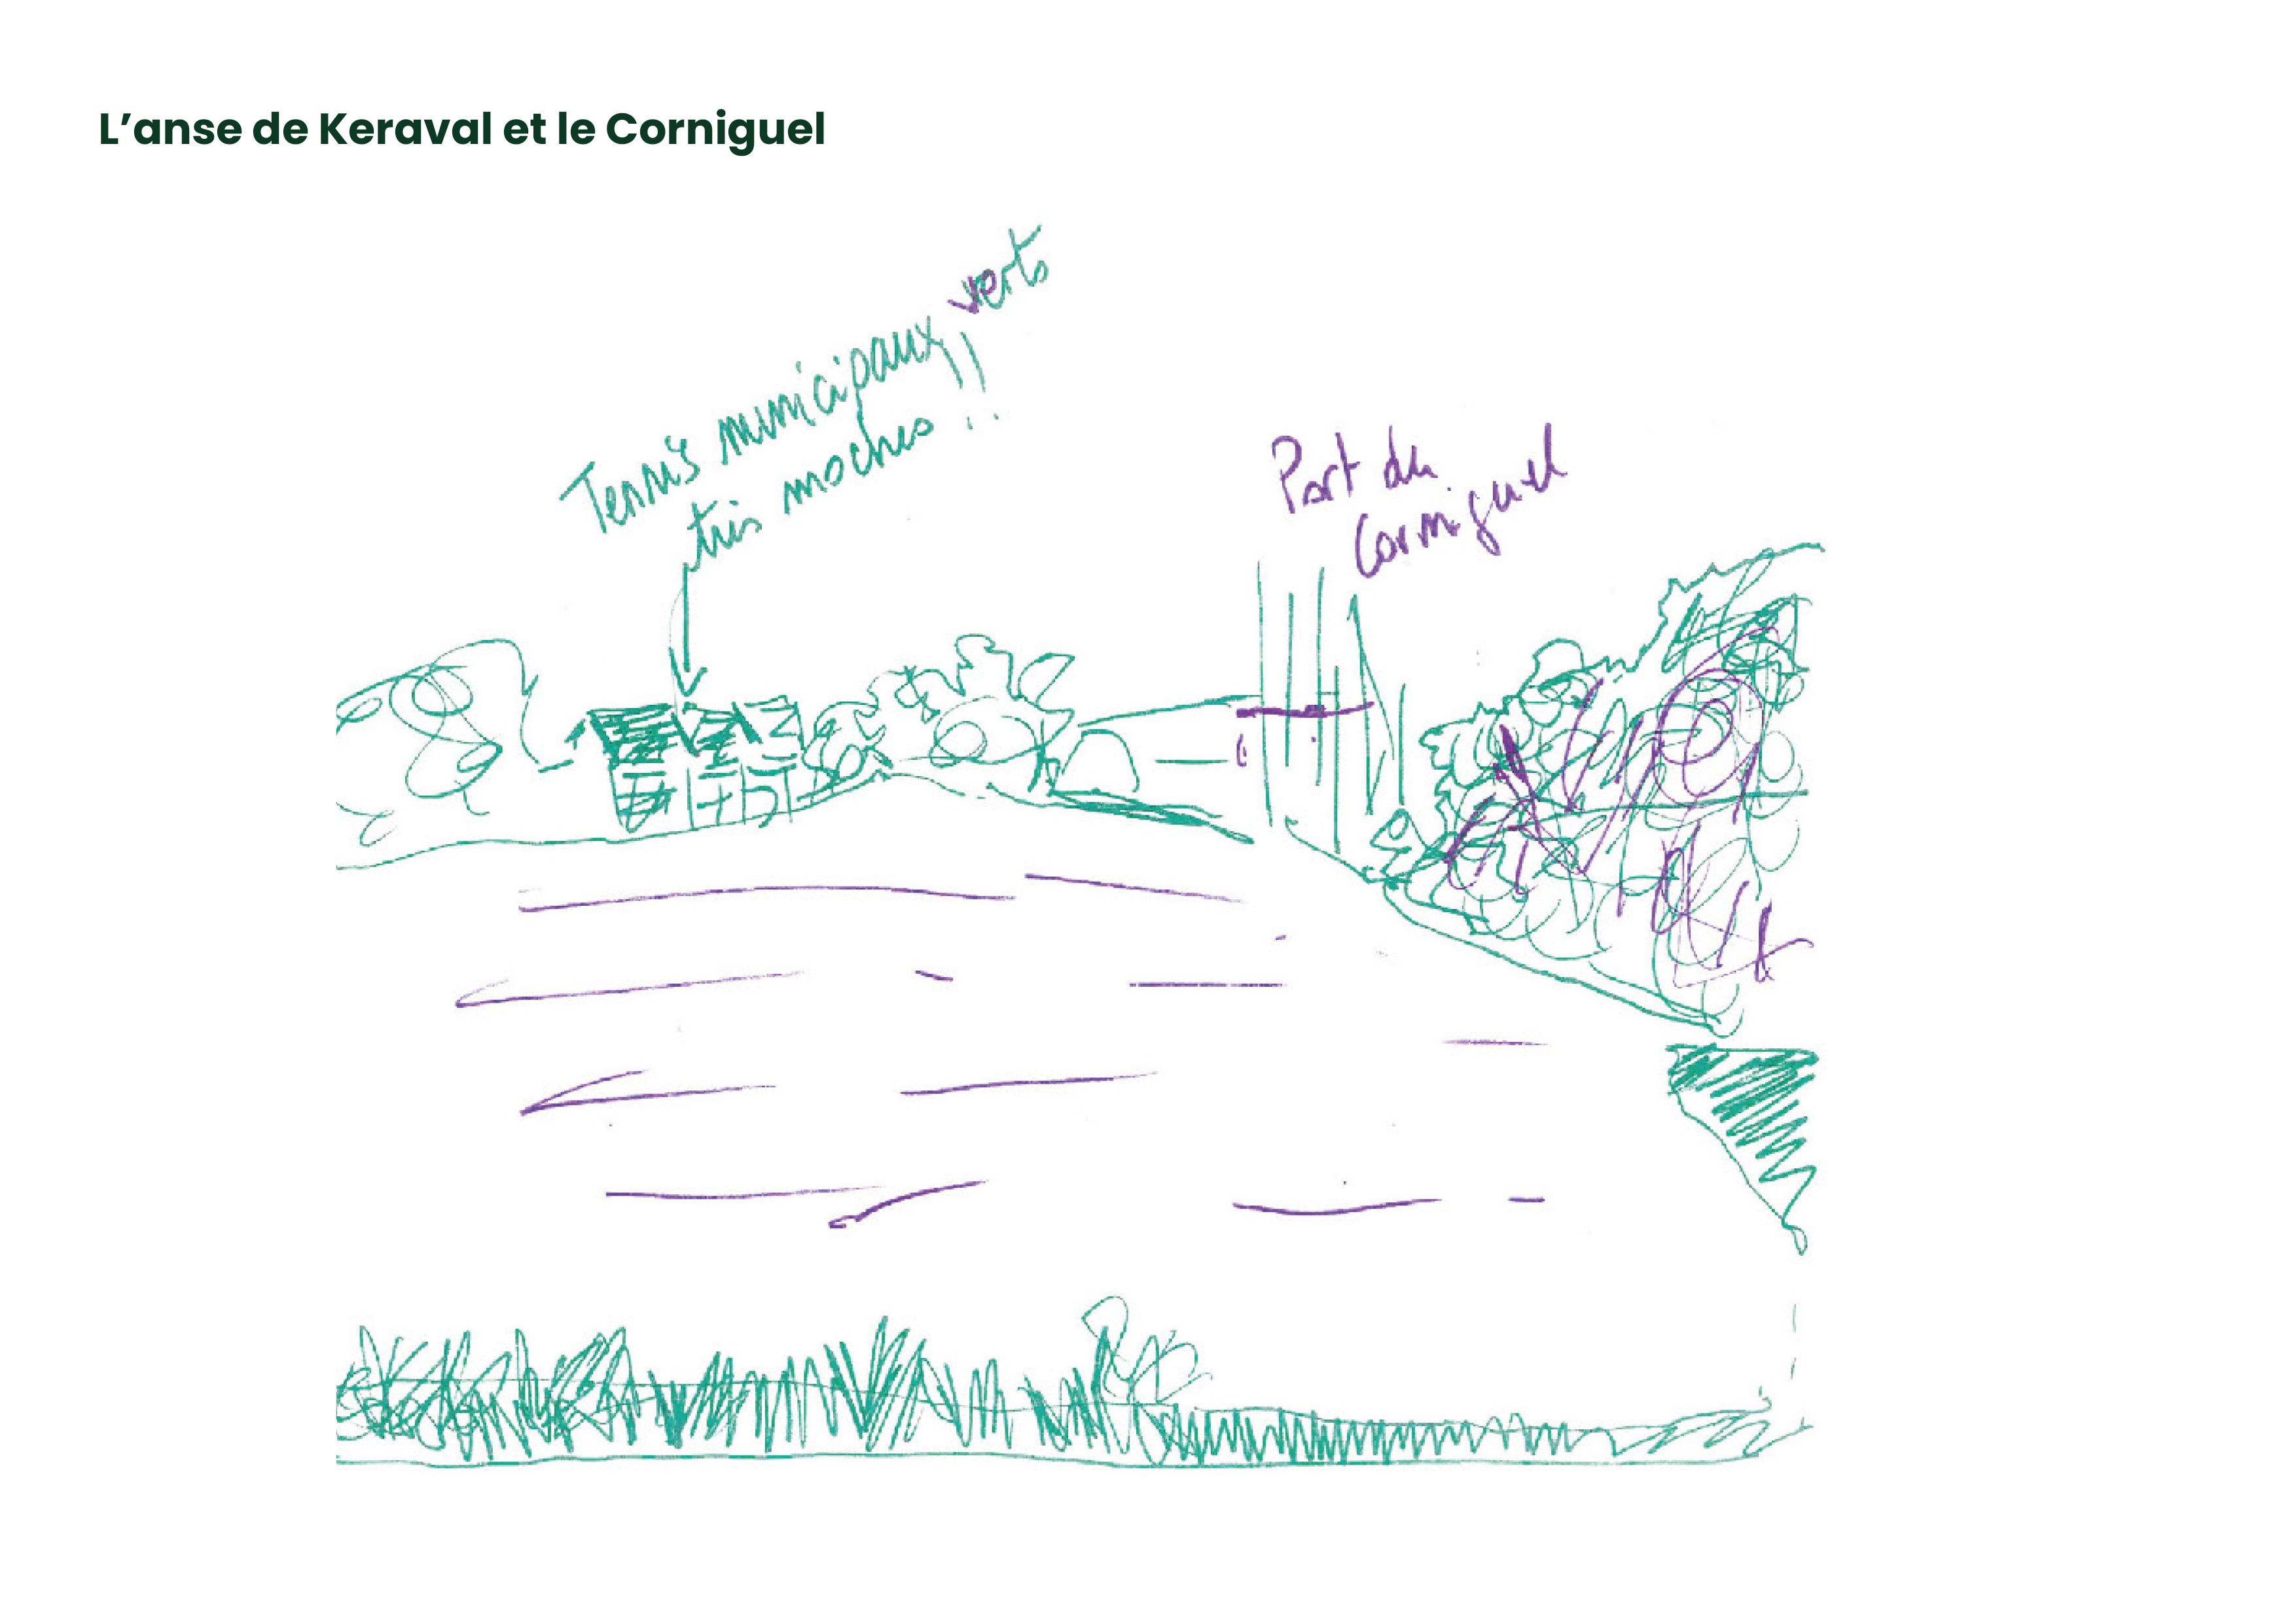 L'anse de Keraval et le Corniguel
Tennis municipaux verts
très moches !!
Port du
Corniguel